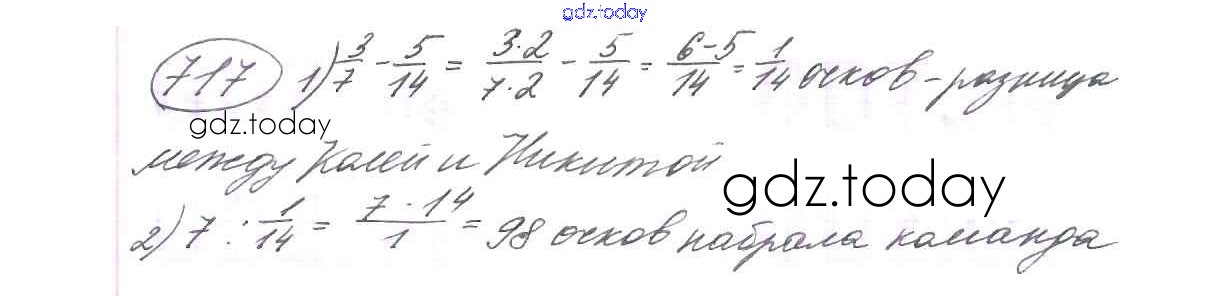 gdz.today
717 1) 3/7 - 5/14 = 3·2/7·2 - 5/14 = 6-5/14 = 1/14 очков - разница
gdz.today
между Колей и Никитой
gdz.today
2) 7 : 1/14 = 7·14/1 = 98 очков набрала команда